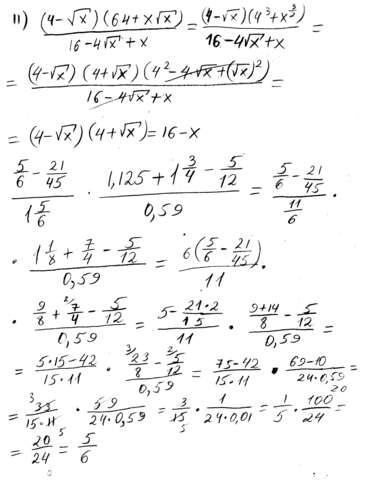 11) ((4-√x)(64+x√x))/(16-4√x+x) = ((4-√x)(4³+x^(3/2)))/(16-4√x+x) =
= ((4-√x)(4+√x)(4²-4√x+(√x)²))/(16-4√x+x) =
= (4-√x)(4+√x)=16-x
(5/6 - 21/45)/(1 5/6) · (1,125+1 3/4 - 5/12)/(0,59) = (5/6 - 21/45)/(11/6) ·
· (1 1/8 + 7/4 - 5/12)/(0,59) = (6(5/6 - 21/45))/11 ·
· (9/8 + ²⁄7/4 - 5/12)/(0,59) = (5 - (21·2)/15)/11 · ((9+14)/8 - 5/12)/(0,59) =
= (5·15-42)/(15·11) · (³⁄23/8 - ²⁄5/12)/(0,59) = (75-42)/(15·11) · (69-10)/(24·0,59) =
= ³ 33/(15·11) · 59/(24·0,59) = 3/15 5 · 1/(24·0,01) = 1/5 · 100/24 20 =
= 20/24 5 = 5/6